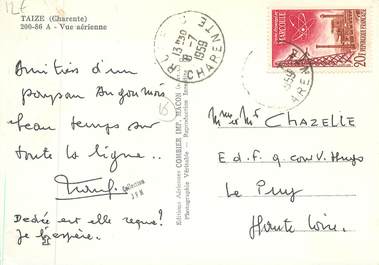 12F
TAIZE (Charente)
200-86 A - Vue aérienne
13H30
8-7
1959
CHARENTE
MARCOULE
20F
REPUBLIQUE FRANÇAISE
Amitiés d'un
paysan Angoumois
beau temps sur
toute la ligne..
Collection
JFM
Dédée est elle reçue?
Je l'espère.
Editions Aériennes COMBIER IMP. MACON
Photographie Véritable - Reproduction Interdite
Mme et Mr CHAZELLE
E.d.F. 9 cour V. Hugo
Le Puy
Haute Loire.